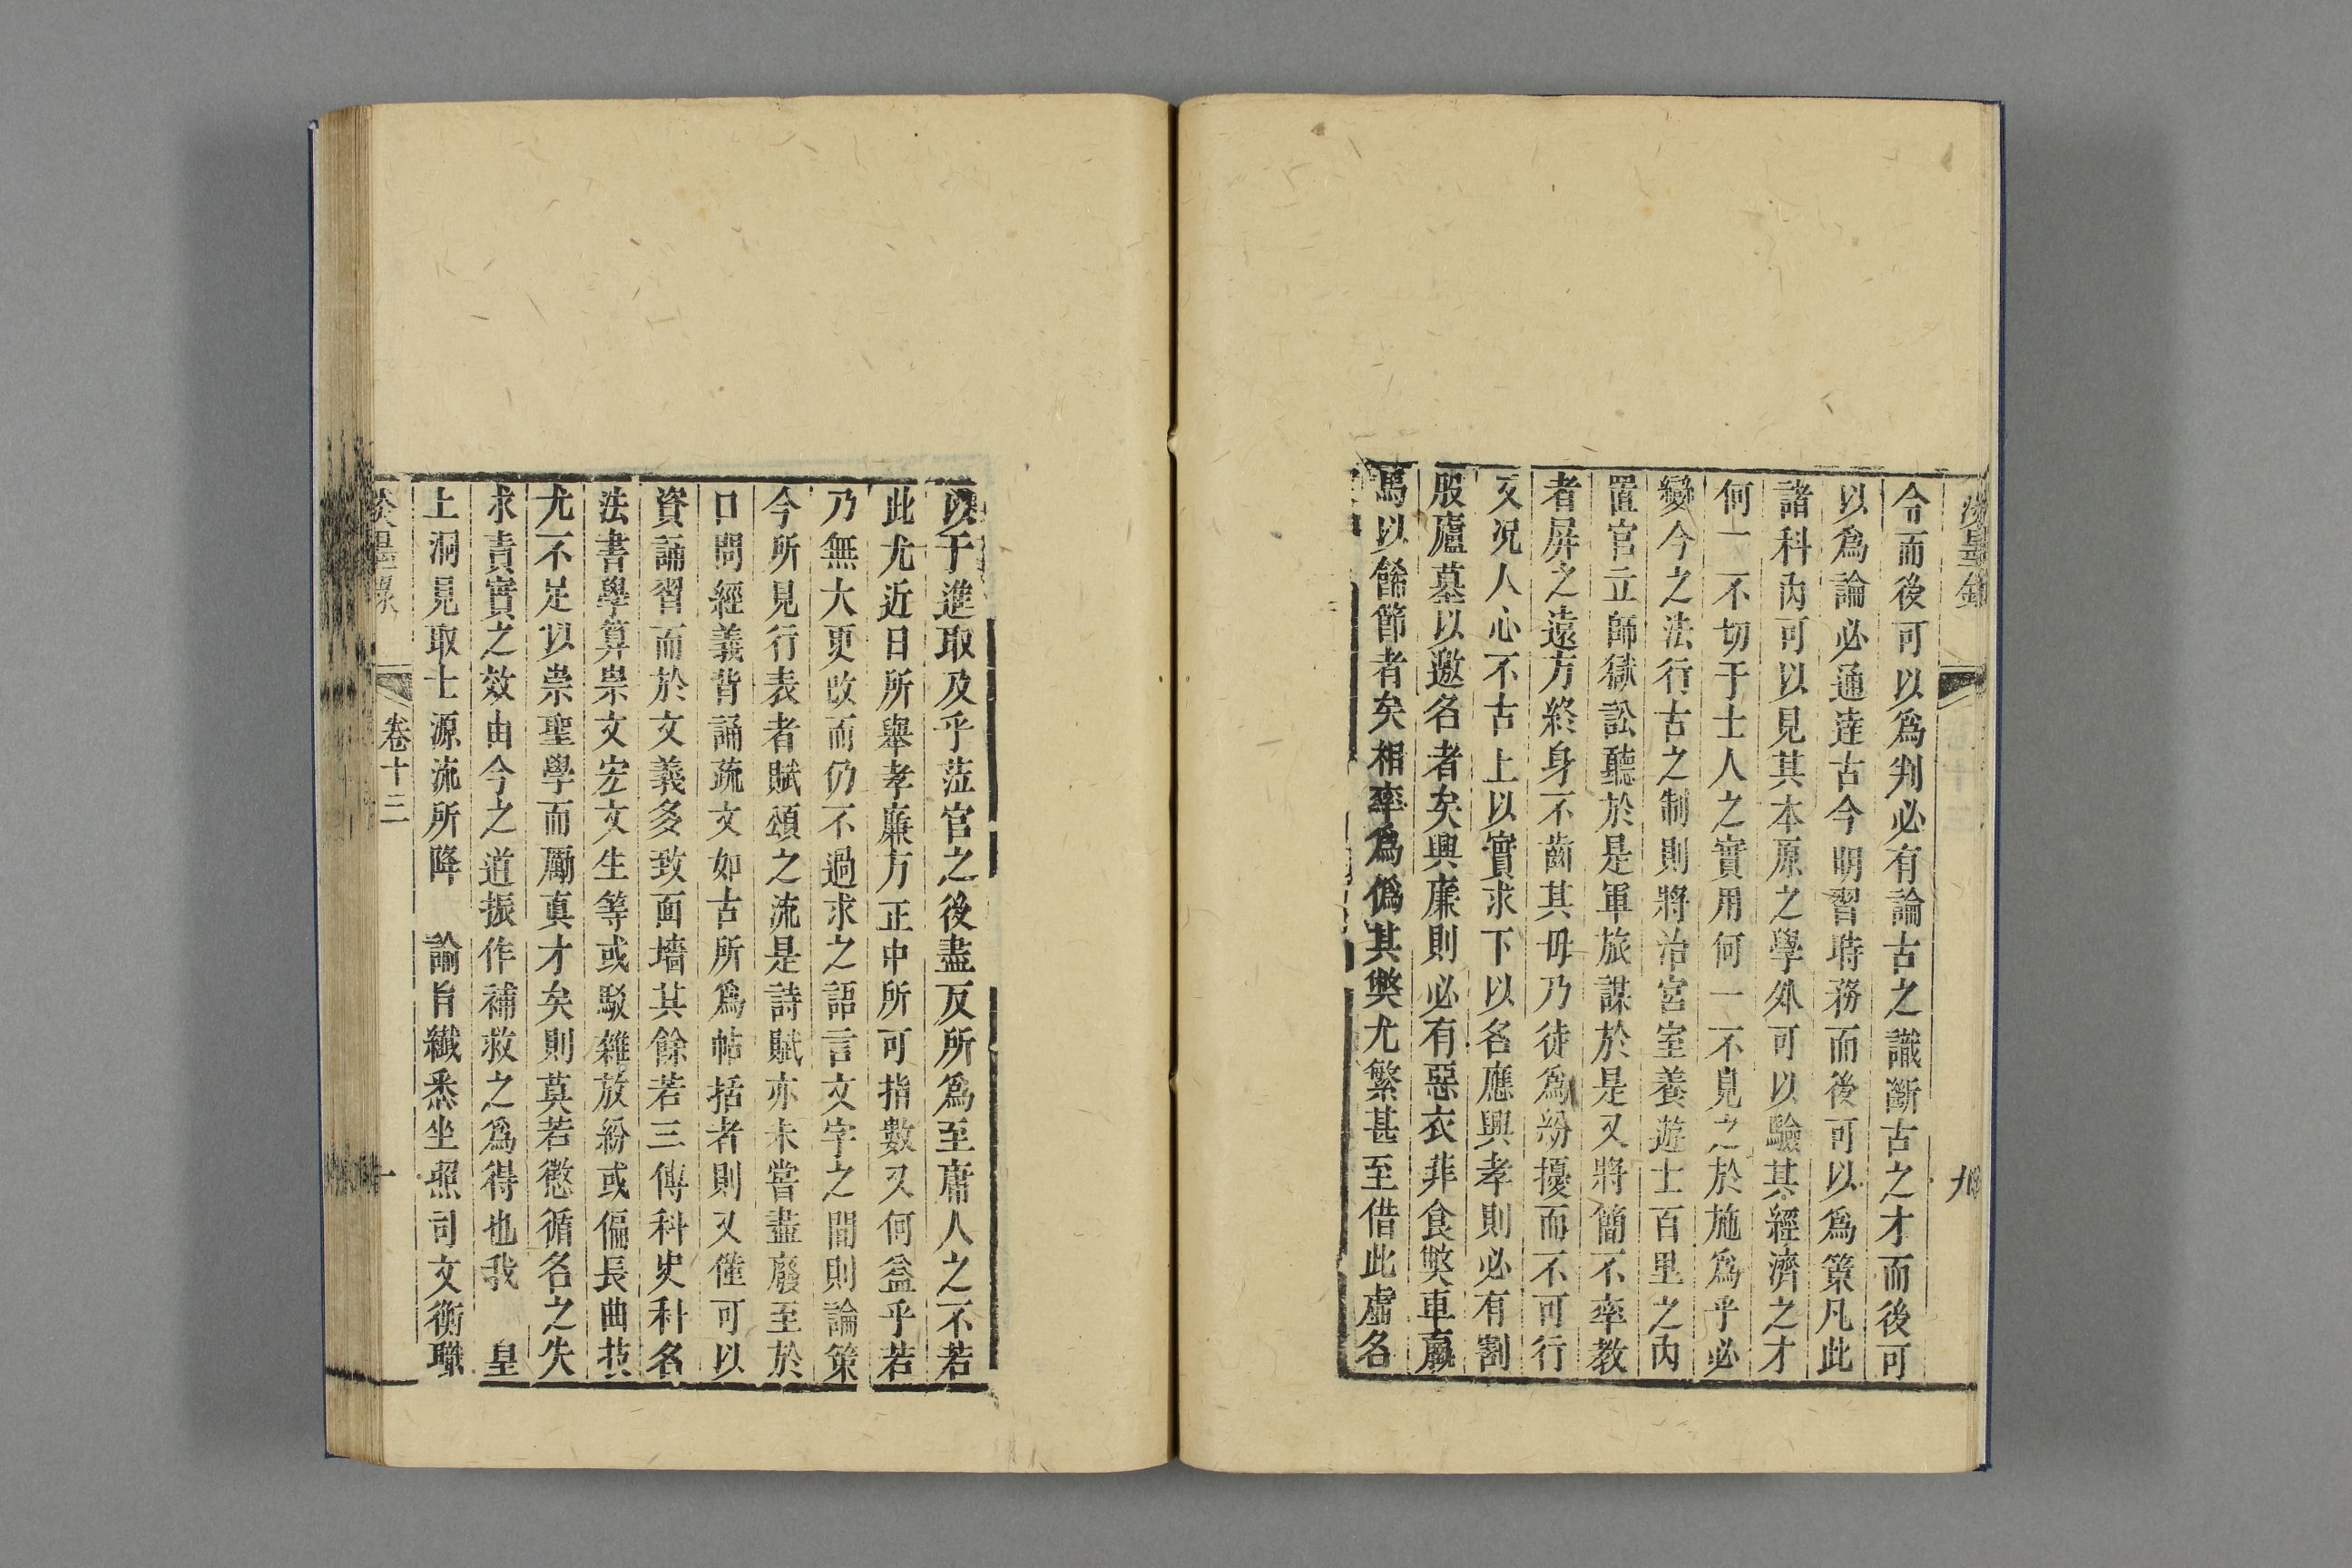 令而後可以爲判必有論古之識斷古之才而後可
以爲論必通達古今明習時務而後可以爲策凡此
諸科內可以見其本原之學外可以驗其經濟之才
何一不切于士人之實用何一不見之於施爲乎必
變今之法行古之制則將治宮室養遊士百里之內
置官立師獄訟聽於是軍旅謀於是又將簡不率教
者屏之遠方終身不齒其毋乃徒爲紛擾而不可行
又况人心不古上以實求下以名應興孝則必有割
股廬墓以邀名者矣興廉則必有惡衣菲食獘車羸
馬以餙節者矣相率爲僞其獘尤繁甚至借此虛名
以于進取及乎蒞官之後盡反所爲至庸人之不若
此尤近日所舉孝廉方正中所可指數又何益乎若
乃無大更改而仍不過求之語言文字之間則論策
今所見行表者賦頌之流是詩賦亦未嘗盡廢至於
口問經義背誦疏文如古所爲帖括者則又僅可以
資誦習而於文義多致面墻其餘若三傳科史科名
法書學算祟文宏文生等或駁雜放紛或偏長曲技
尤不足以崇聖學而勵眞才矣則莫若懲循名之失
求責實之效由今之道振作補救之爲得也我　皇
上洞見取士源流所降　諭旨纖悉坐照司文衡職
卷十三